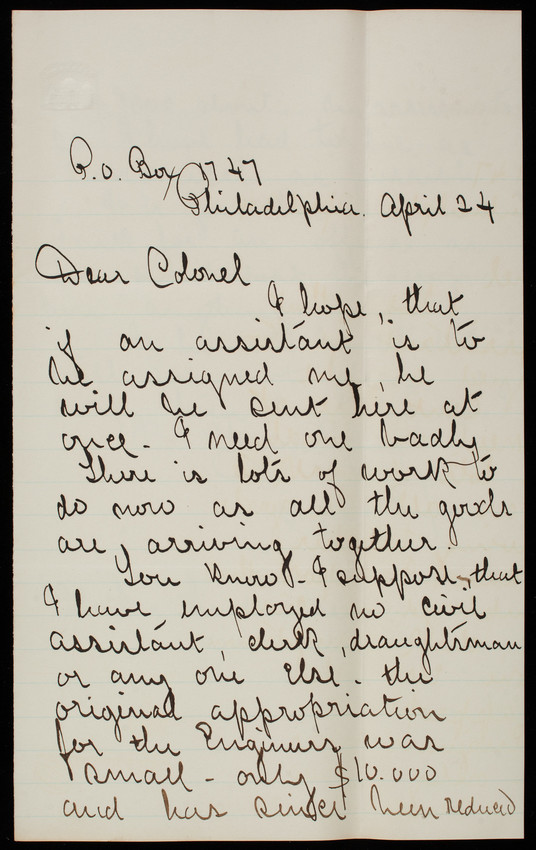 P.O. Box 1747
Philadelphia. April 24
Dear Colonel
I hope, that
if an assistant is to
be assigned me, he
will be sent here at
once. I need one badly
There is lots of work to
do now as all the goods
are arriving together.
You know - I suppose - that
I have employed no civil
assistant, clerk, draughtsman
or any one else. the
original appropriation
for the Engineers was
small - only $10.000
and has since been reduced